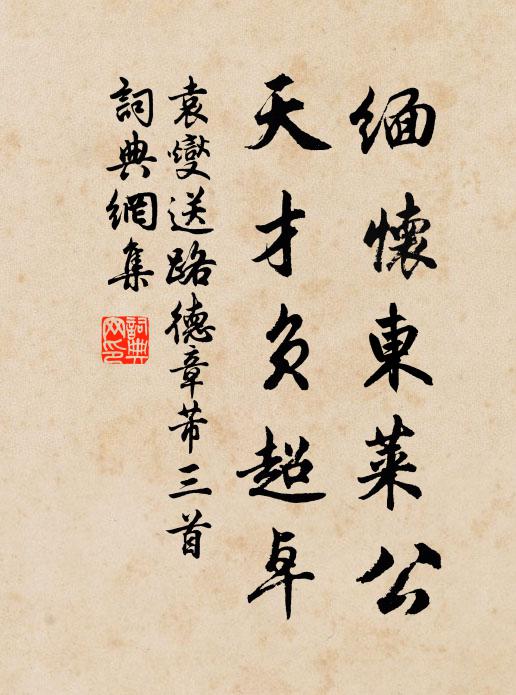 緬懷東萊公
天才負超卓
袁燮送路德章芾三首
詞典網集
詞典
网印